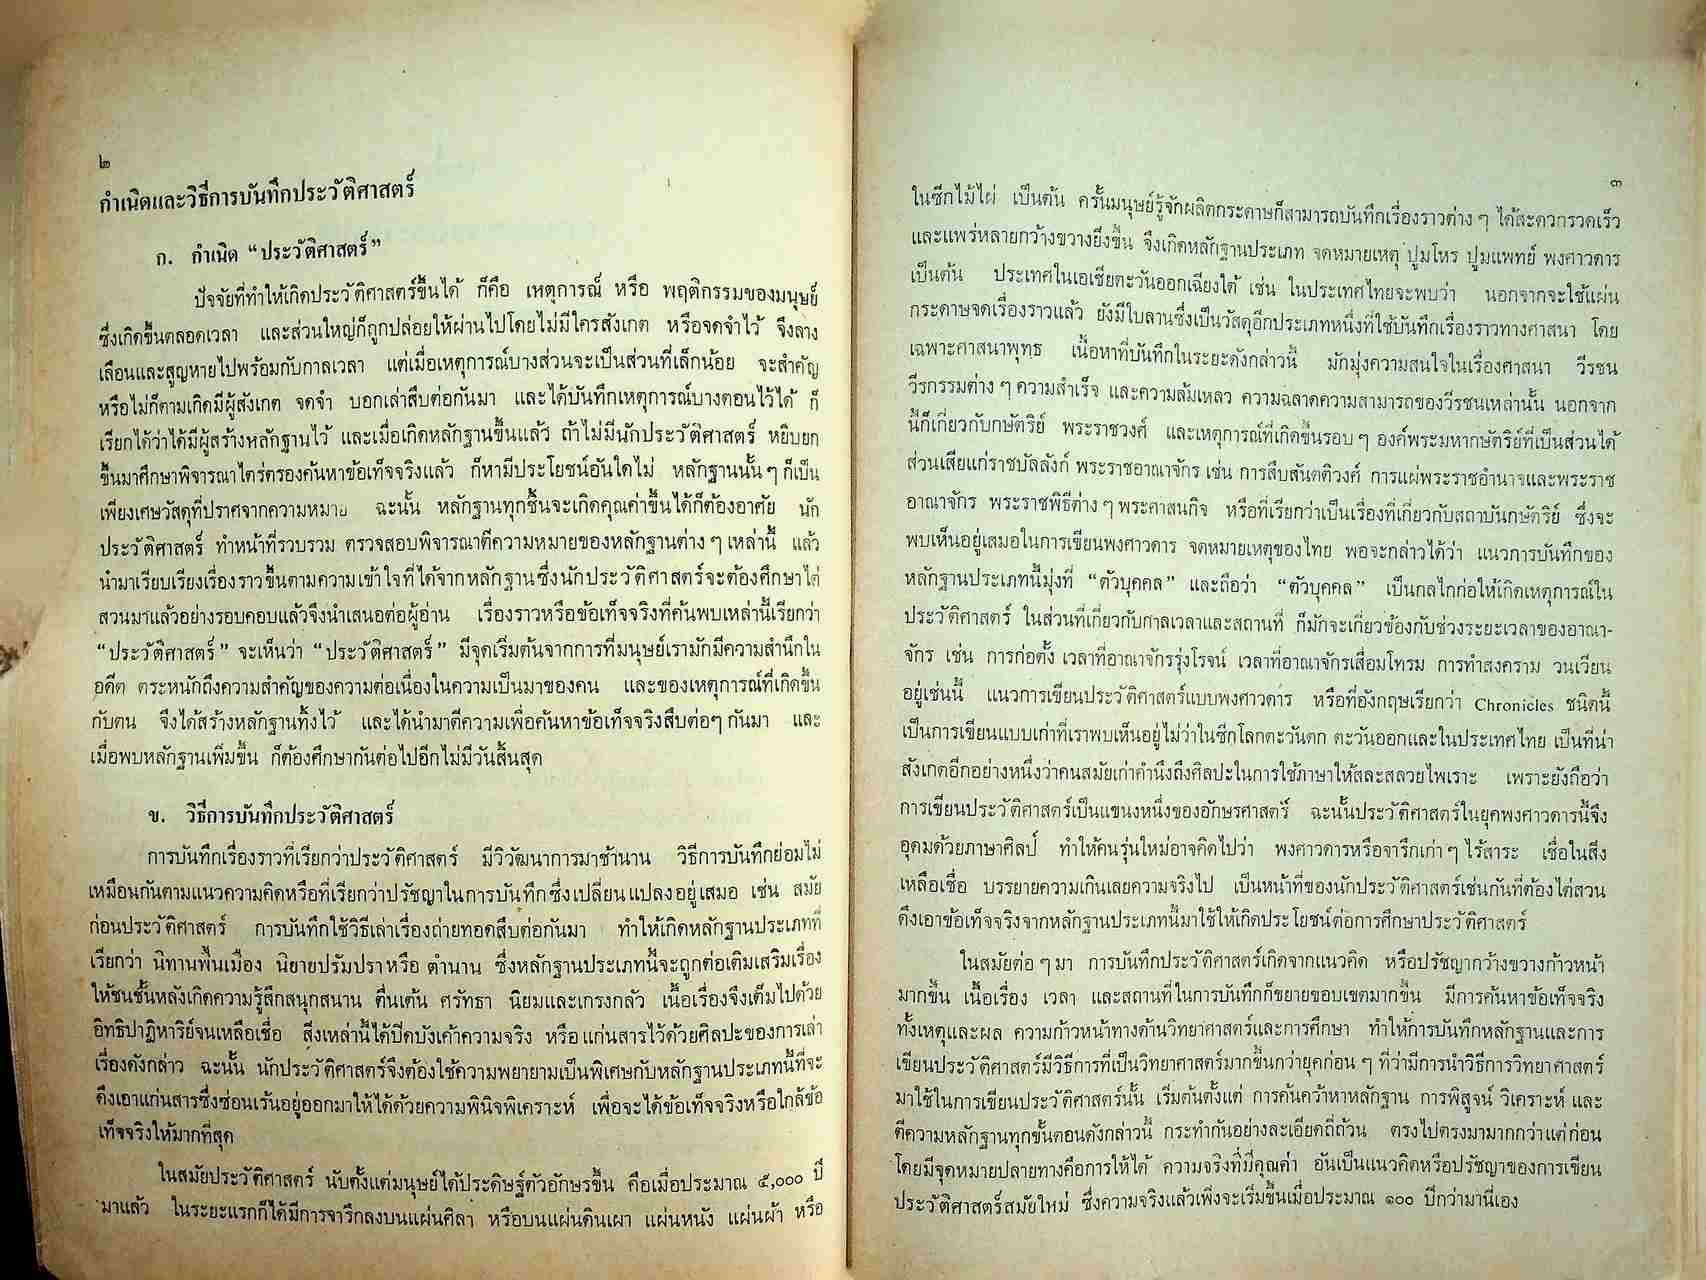 ๒
กำเนิดและวิธีการบันทึกประวัติศาสตร์
ก. กำเนิด “ประวัติศาสตร์”
ปัจจัยที่ทำให้เกิดประวัติศาสตร์ขึ้นได้ ก็คือ เหตุการณ์ หรือ พฤติกรรมของมนุษย์
ซึ่งเกิดขึ้นตลอดเวลา และส่วนใหญ่ก็ถูกปล่อยให้ผ่านไปโดยไม่มีใครสังเกต หรือจดจำไว้ จึงลาง
เลือนและสูญหายไปพร้อมกับกาลเวลา แต่เมื่อเหตุการณ์บางส่วนจะเป็นส่วนที่เล็กน้อย จะสำคัญ
หรือไม่ก็ตามเกิดมีผู้สังเกต จดจำ บอกเล่าสืบต่อกันมา และได้บันทึกเหตุการณ์บางตอนไว้ได้ ก็
เรียกได้ว่าได้มีผู้สร้างหลักฐานไว้ และเมื่อเกิดหลักฐานขึ้นแล้ว ถ้าไม่มีนักประวัติศาสตร์ หยิบยก
ขึ้นมาศึกษาพิจารณาไตร่ตรองค้นหาข้อเท็จจริงแล้ว ก็หามีประโยชน์อันใดไม่ หลักฐานนั้น ๆ ก็เป็น
เพียงเศษวัสดุที่ปราศจากความหมาย ฉะนั้น หลักฐานทุกชิ้นจะเกิดคุณค่าขึ้นได้ก็ต้องอาศัย นัก
ประวัติศาสตร์ ทำหน้าที่รวบรวม ตรวจสอบพิจารณาตีความหมายของหลักฐานต่าง ๆ เหล่านี้ แล้ว
นำมาเรียบเรียงเรื่องราวขึ้นตามความเข้าใจที่ได้จากหลักฐานซึ่งนักประวัติศาสตร์จะต้องศึกษาไต่
สวนมาแล้วอย่างรอบคอบแล้วจึงนำเสนอต่อผู้อ่าน เรื่องราวหรือข้อเท็จจริงที่ค้นพบเหล่านี้เรียกว่า
“ประวัติศาสตร์” จะเห็นว่า “ประวัติศาสตร์” มีจุดเริ่มต้นจากการที่มนุษย์เรามักมีความสำนึกใน
อดีต ตระหนักถึงความสำคัญของความต่อเนื่องในความเป็นมาของคน และของเหตุการณ์ที่เกิดขึ้น
กับตน จึงได้สร้างหลักฐานทิ้งไว้ และได้นำมาตีความเพื่อค้นหาข้อเท็จจริงสืบต่อๆ กันมา และ
เมื่อพบหลักฐานเพิ่มขึ้น ก็ต้องศึกษากันต่อไปอีกไม่มีวันสิ้นสุด
ข. วิธีการบันทึกประวัติศาสตร์
การบันทึกเรื่องราวที่เรียกว่าประวัติศาสตร์ มีวิวัฒนาการมาช้านาน วิธีการบันทึกย่อมไม่
เหมือนกันตามแนวความคิดหรือที่เรียกว่าปรัชญาในการบันทึกซึ่งเปลี่ยนแปลงอยู่เสมอ เช่น สมัย
ก่อนประวัติศาสตร์ การบันทึกใช้วิธีเล่าเรื่องถ่ายทอดสืบต่อกันมา ทำให้เกิดหลักฐานประเภทที่
เรียกว่า นิทานพื้นเมือง นิยายปรัมปราหรือ ตำนาน ซึ่งหลักฐานประเภทนี้จะถูกต่อเติมเสริมเรื่อง
ให้ชนชั้นหลังเกิดความรู้สึกสนุกสนาน ตื่นเต้น ศรัทธา นิยมและเกรงกลัว เนื้อเรื่องจึงเต็มไปด้วย
อิทธิปาฏิหาริย์จนเหลือเชื่อ สิ่งเหล่านี้ได้ปิดบังเค้าความจริง หรือแก่นสารไว้ด้วยศิลปะของการเล่า
เรื่องดังกล่าว ฉะนั้น นักประวัติศาสตร์จึงต้องใช้ความพยายามเป็นพิเศษกับหลักฐานประเภทนี้ที่จะ
ดึงเอาแก่นสารซึ่งซ่อนเร้นอยู่ออกมาให้ได้ด้วยความพินิจพิเคราะห์ เพื่อจะได้ข้อเท็จจริงหรือใกล้ข้อ
เท็จจริงให้มากที่สุด
ในสมัยประวัติศาสตร์ นับตั้งแต่มนุษย์ได้ประดิษฐ์ตัวอักษรขึ้น คือเมื่อประมาณ ๕,๐๐๐ ปี
มาแล้ว ในระยะแรกก็ได้มีการจารึกลงบนแผ่นศิลา หรือบนแผ่นดินเผา แผ่นหนัง แผ่นผ้า หรือ
๓
ในซีกไม้ไผ่ เป็นต้น ครั้นมนุษย์รู้จักผลิตกระดาษก็สามารถบันทึกเรื่องราวต่าง ๆ ได้สะดวกรวดเร็ว
และแพร่หลายกว้างขวางยิ่งขึ้น จึงเกิดหลักฐานประเภท จดหมายเหตุ ปูมโหร ปูมแพทย์ พงศาวดาร
เป็นต้น ประเทศในเอเซียตะวันออกเฉียงใต้ เช่น ในประเทศไทยจะพบว่า นอกจากจะใช้แผ่น
กระดาษจดเรื่องราวแล้ว ยังมีใบลานซึ่งเป็นวัสดุอีกประเภทหนึ่งที่ใช้บันทึกเรื่องราวทางศาสนา โดย
เฉพาะศาสนาพุทธ เนื้อหาที่บันทึกในระยะดังกล่าวนี้ มักมุ่งความสนใจในเรื่องศาสนา วีรชน
วีรกรรมต่าง ๆ ความสำเร็จ และความล้มเหลว ความฉลาดความสามารถของวีรชนเหล่านั้น นอกจาก
นี้ก็เกี่ยวกับกษัตริย์ พระราชวงศ์ และเหตุการณ์ที่เกิดขึ้นรอบ ๆ องค์พระมหากษัตริย์ที่เป็นส่วนได้
ส่วนเสียแก่ราชบัลลังก์ พระราชอาณาจักร เช่น การสืบสันตติวงศ์ การแผ่พระราชอำนาจและพระราช
อาณาจักร พระราชพิธีต่าง ๆ พระศาสนกิจ หรือที่เรียกว่าเป็นเรื่องที่เกี่ยวกับสถาบันกษัตริย์ ซึ่งจะ
พบเห็นอยู่เสมอในการเขียนพงศาวดาร จดหมายเหตุของไทย พอจะกล่าวได้ว่า แนวการบันทึกของ
หลักฐานประเภทนี้มุ่งที่ “ตัวบุคคล” และถือว่า “ตัวบุคคล” เป็นกลไกก่อให้เกิดเหตุการณ์ใน
ประวัติศาสตร์ ในส่วนที่เกี่ยวกับกาลเวลาและสถานที่ ก็มักจะเกี่ยวข้องกับช่วงระยะเวลาของอาณา-
จักร เช่น การก่อตั้ง เวลาที่อาณาจักรรุ่งโรจน์ เวลาที่อาณาจักรเสื่อมโทรม การทำสงคราม วนเวียน
อยู่เช่นนี้ แนวการเขียนประวัติศาสตร์แบบพงศาวดาร หรือที่อังกฤษเรียกว่า Chronicles ชนิดนี้
เป็นการเขียนแบบเก่าที่เราพบเห็นอยู่ไม่ว่าในซีกโลกตะวันตก ตะวันออกและในประเทศไทย เป็นที่น่า
สังเกตอีกอย่างหนึ่งว่าคนสมัยเก่าคำนึงถึงศิลปะในการใช้ภาษาให้สละสลวยไพเราะ เพราะยังถือว่า
การเขียนประวัติศาสตร์เป็นแขนงหนึ่งของอักษรศาสตร์ ฉะนั้นประวัติศาสตร์ในยุคพงศาวดารนี้จึง
อุดมด้วยภาษาศิลป์ ทำให้คนรุ่นใหม่อาจคิดไปว่า พงศาวดารหรือจารึกเก่า ๆ ไร้สาระ เชื่อในสิ่ง
เหลือเชื่อ บรรยายความเกินเลยความจริงไป เป็นหน้าที่ของนักประวัติศาสตร์เช่นกันที่ต้องไต่สวน
ดึงเอาข้อเท็จจริงจากหลักฐานประเภทนี้มาใช้ให้เกิดประโยชน์ต่อการศึกษาประวัติศาสตร์
ในสมัยต่อ ๆ มา การบันทึกประวัติศาสตร์เกิดจากแนวคิด หรือปรัชญากว้างขวางก้าวหน้า
มากขึ้น เนื้อเรื่อง เวลา และสถานที่ในการบันทึกก็ขยายขอบเขตมากขึ้น มีการค้นหาข้อเท็จจริง
ทั้งเหตุและผล ความก้าวหน้าทางด้านวิทยาศาสตร์และการศึกษา ทำให้การบันทึกหลักฐานและการ
เขียนประวัติศาสตร์มีวิธีการที่เป็นวิทยาศาสตร์มากขึ้นกว่ายุคก่อน ๆ ที่ว่ามีการนำวิธีการวิทยาศาสตร์
มาใช้ในการเขียนประวัติศาสตร์นั้น เริ่มต้นตั้งแต่ การค้นคว้าหาหลักฐาน การพิสูจน์ วิเคราะห์ และ
ตีความหลักฐานทุกขั้นตอนดังกล่าวนี้ กระทำกันอย่างละเอียดถี่ถ้วน ตรงไปตรงมามากกว่าแต่ก่อน
โดยมีจุดหมายปลายทางคือการให้ได้ ความจริงที่มีคุณค่า อันเป็นแนวคิดหรือปรัชญาของการเขียน
ประวัติศาสตร์สมัยใหม่ ซึ่งความจริงแล้วเพิ่งจะเริ่มขึ้นเมื่อประมาณ ๑๐๐ ปีกว่ามานี่เอง